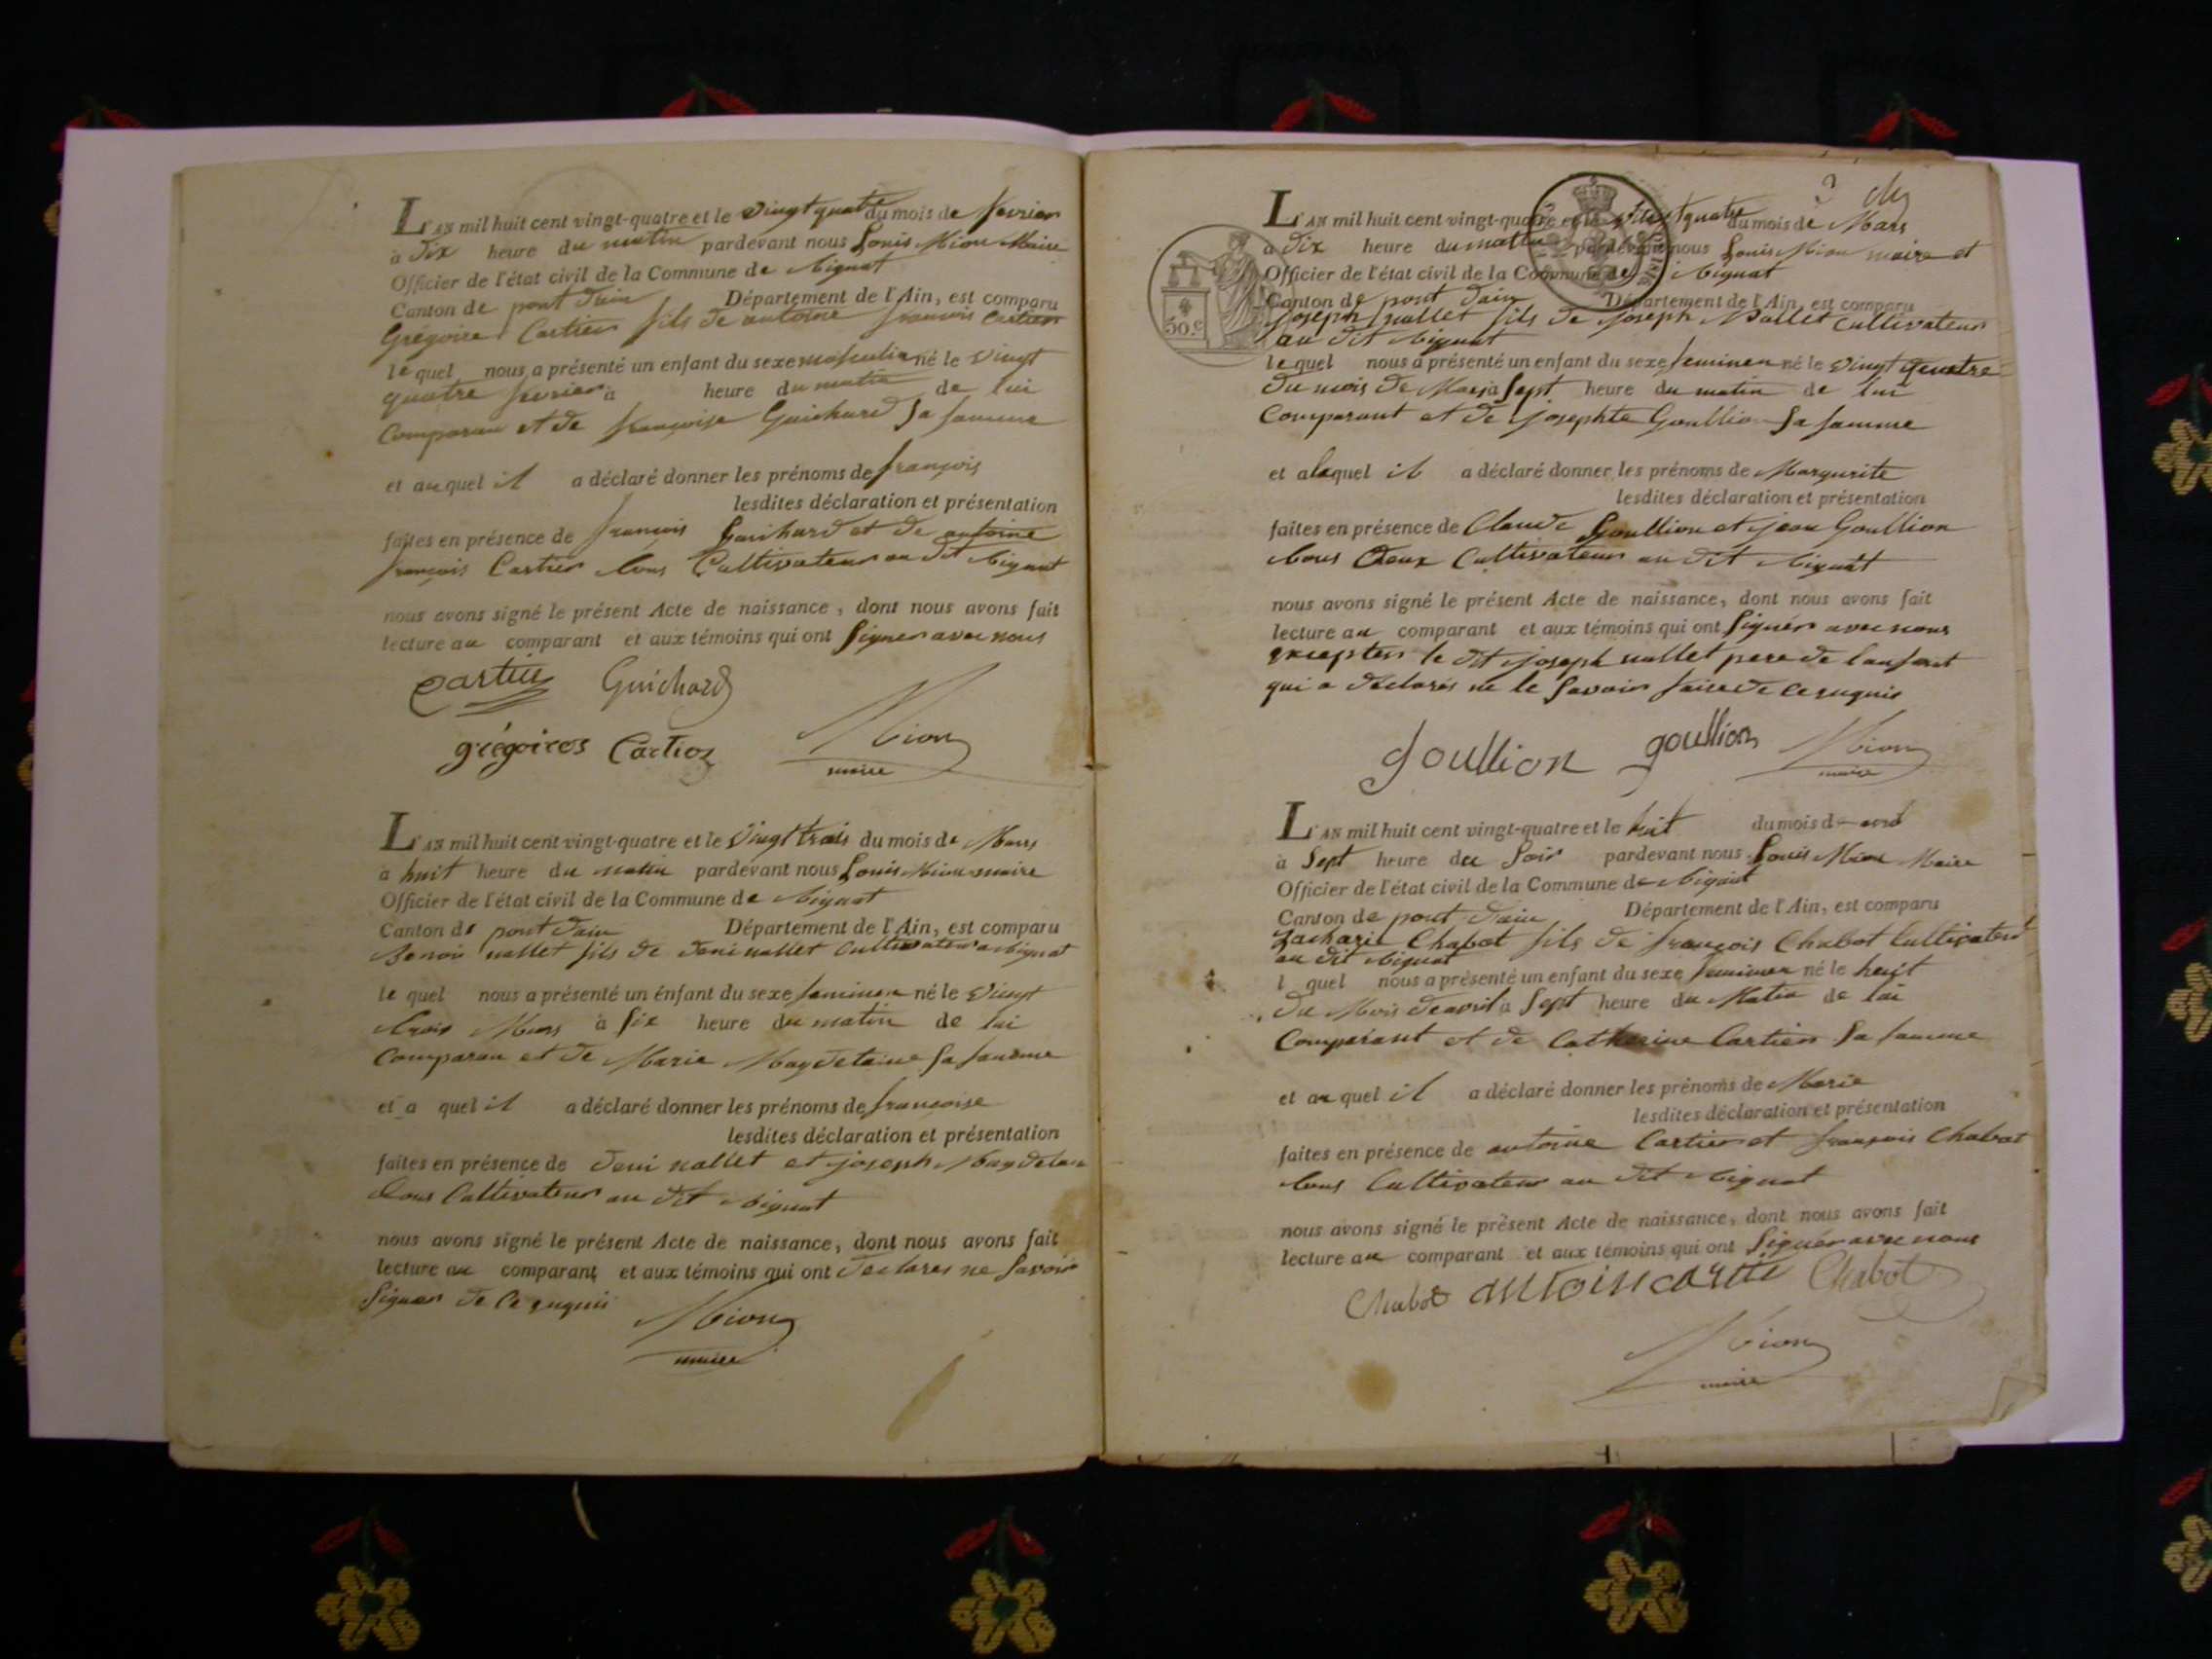 L'AN mil huit cent vingt-quatre et le vingt quatre du mois de fevrier
à dix heure du matin pardevant nous Louis Mion Maire
Officier de l'état civil de la Commune de
Canton de pont dain Département de l'Ain, est comparu
Grégoire Cartier fils de antoine francois Cartier
le quel nous a présenté un enfant du sexe masculin né le vingt
quatre fevrier à heure du matin de lui
Comparan et de françoise Guichard Sa famme
et au quel il a déclaré donner les prénoms de françois
lesdites déclaration et présentation
faites en présence de francois Guichard et de antoine
françois Cartier tous Cultivateur au dit
nous avons signé le présent Acte de naissance, dont nous avons fait
lecture au comparant et aux témoins qui ont Signer avec nous
Cartier Guichard
grégoires Cartier Mion
maire
L'AN mil huit cent vingt-quatre et le vingt trois du mois de Mars
à huit heure du matin pardevant nous Louis Mion maire
Officier de l'état civil de la Commune de
Canton de pont dain Département de l'Ain, est comparu
Benoit nallet fils de deni nallet Cultivateur a
le quel nous a présenté un énfant du sexe feminen né le vingt
trois Mars à Six heure du matin de lui
Comparan et de Marie Magdelaine Sa famme
et a quel il a déclaré donner les prénoms de françoise
lesdites déclaration et présentation
faites en présence de deni nallet et joseph Magdelaine
tous Cultivateur au dit
nous avons signé le présent Acte de naissance, dont nous avons fait
lecture au comparant et aux témoins qui ont declares ne Savoir
Signer de ce enquis
Mion
maire
3
L'AN mil huit cent vingt-quatre et le vingt quatre du mois de Mars
à dix heure du matin pardevant nous Louis Mion maire et
Officier de l'état civil de la Commune de
50.c
Canton de pont dain Département de l'Ain, est comparu
joseph nallet fils de joseph Nallet Cultivateur
au dit
le quel nous a présenté un enfant du sexe feminen né le vingt quatre
du mois de Mars à Sept heure du matin de lui
Comparant et de josephte Goullion Sa famme
et alaquel il a déclaré donner les prénoms de Margurite
lesdites déclaration et présentation
faites en présence de Claude Goullion et jean Goullion
tous deux Cultivateur au dit
nous avons signé le présent Acte de naissance, dont nous avons fait
lecture au comparant et aux témoins qui ont Signér avec nous
excepter le dit joseph nallet pere de l'anfant
qui a declarés ne le Savoir faire de ce enquis
goullion goullion Mion
maire
L'AN mil huit cent vingt-quatre et le huit du mois d avril
à Sept heure du Soir pardevant nous Louis Mion Maire
Officier de l'état civil de la Commune de
Canton de pont dain Département de l'Ain, est comparu
Zacharie Chabot fils de françois Chabot Cultivateur
au dit
l quel nous a présenté un enfant du sexe feminen né le huit
du Mois d'avril à Sept heure du Matin de lui
Comparant et de Catherine Cartier Sa famme
et au quel il a déclaré donner les prénoms de Marie
lesdites déclaration et présentation
faites en présence de antoine Cartier et françois Chabot
tous Cultivateur au dit
nous avons signé le présent Acte de naissance, dont nous avons fait
lecture au comparant et aux témoins qui ont Signér avec nous
Chabot antoin cartie Chabot
Mion
maire